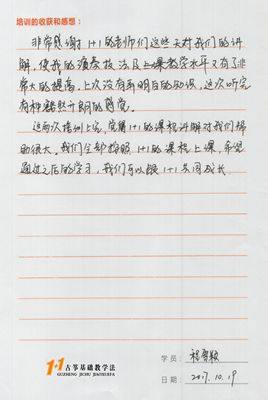 培训的收获和感想：
非常感谢1+1的老师们这些天对我们的讲
解，使我的演奏技法及上课教学水平又有了非
常大的提高，上次没有弄明白的知识，这次听完
有种豁然开朗的感觉。
这两次培训上完，觉得1+1的课程讲解对我们帮
助很大，我们全部按照1+1的课程上课，希望
通过之后的学习，我们可以跟1+1共同成长。
1+1古筝基础教学法
GUZHENG JICHU JIAOXUEFA
学员：
日期：2017.10.19